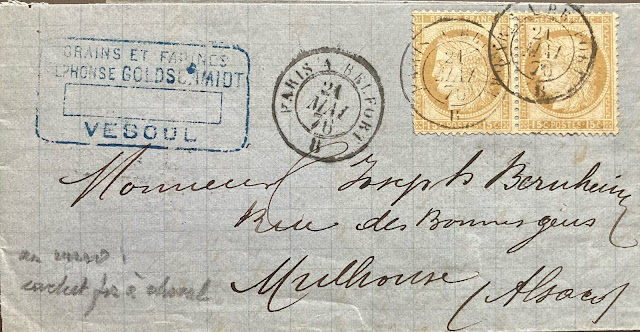 GRAINS ET FARINES
LPHONSE GOLDSCHMIDT
VESOUL
PARIS A BELFORT
21
MAI
76
B
21
MAI
76
B
21
MAI
76
B
15c POSTES 15c
15c POSTES 15c
Monsieur Joseph Bernheim
Rue des Bonnesgens
Mulhouse (Alsace)
au verso :
cachet fer à cheval